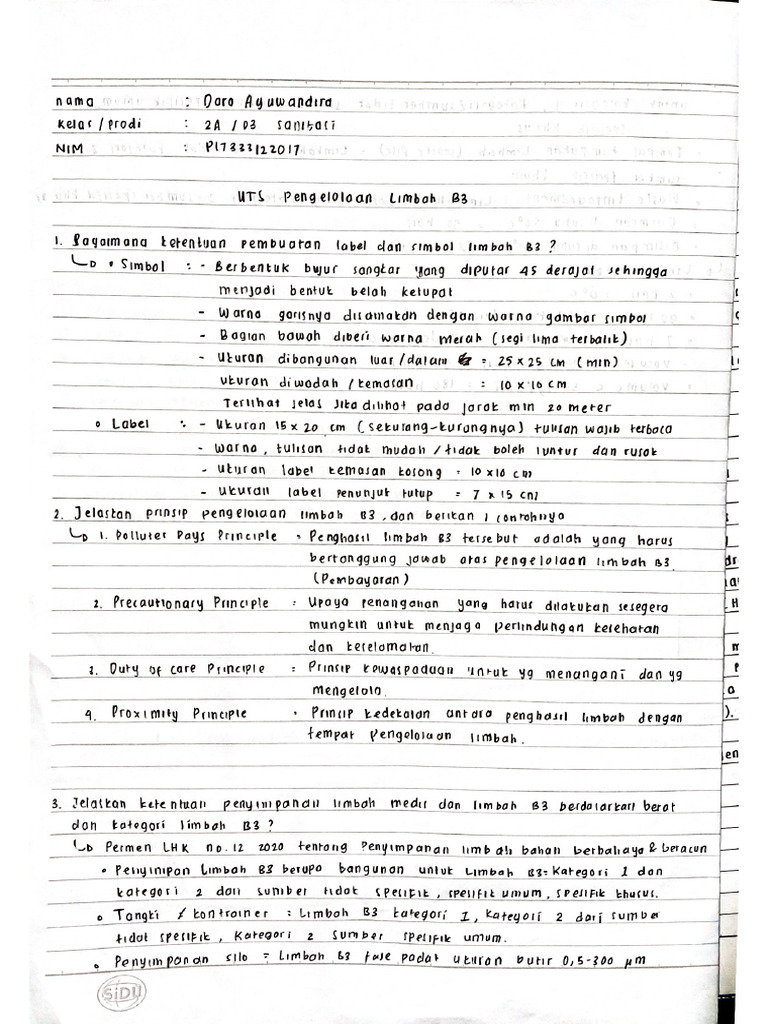 nama : Dara Ayuwandira
Kelas/prodi : 2A / D3 Sanitasi
NIM : P17333122017
UTS Pengelolaan Limbah B3
1. Bagaimana ketentuan pembuatan label dan simbol limbah B3 ?
• Simbol : - Berbentuk bujur sangkar yang diputar 45 derajat sehingga
menjadi bentuk belah ketupat
- Warna garisnya disamakan dengan warna gambar simbol
- Bagian bawah diberi warna merah (segi lima terbalik)
- Ukuran dibangunan luar/dalam = 25 x 25 cm (min)
ukuran diwadah / kemasan = 10 x 10 cm
Terlihat jelas jika dilihat pada jarak min 20 meter
• Label : - Ukuran 15 x 20 cm (sekurang-kurangnya) tulisan wajib terbaca
- Warna, tulisan tidak mudah / tidak boleh luntur dan rusak
- Ukuran label kemasan kosong = 10 x 10 cm
- Ukuran label penunjuk tutup = 7 x 15 cm
2. Jelaskan prinsip pengelolaan limbah B3, dan berikan 1 contohnya
1. Polluter Pays Principle = Penghasil limbah B3 tersebut adalah yang harus
bertanggung jawab atas pengelolaan limbah B3.
(Pembayaran)
2. Precautionary Principle = Upaya penanganan yang harus dilakukan sesegera
mungkin untuk menjaga perlindungan kesehatan
dan keselamatan.
3. Duty of care Principle = Prinsip kewaspadaan untuk yg menangani dan yg
mengelola.
4. Proximity Principle = Prinsip kedekatan antara penghasil limbah dengan
tempat pengelolaan limbah.
3. Jelaskan ketentuan penyimpanan limbah medis dan limbah B3 berdasarkan berat
dan kategori limbah B3 ?
Permen LHK no.12 2020 tentang Penyimpanan limbah bahan berbahaya & beracun
• Penyimpan Limbah B3 berupa bangunan untuk Limbah B3 = Kategori 1 dan
kategori 2 dari sumber tidak spesifik, spesifik umum, spesifik khusus.
• Tangki / kontrainer = Limbah B3 kategori 1, kategori 2 dari sumber
tidak spesifik, Kategori 2 sumber spesifik umum.
• Penyimpanan silo = Limbah B3 fase padat ukuran butir 0,5-300 μm
SiDU